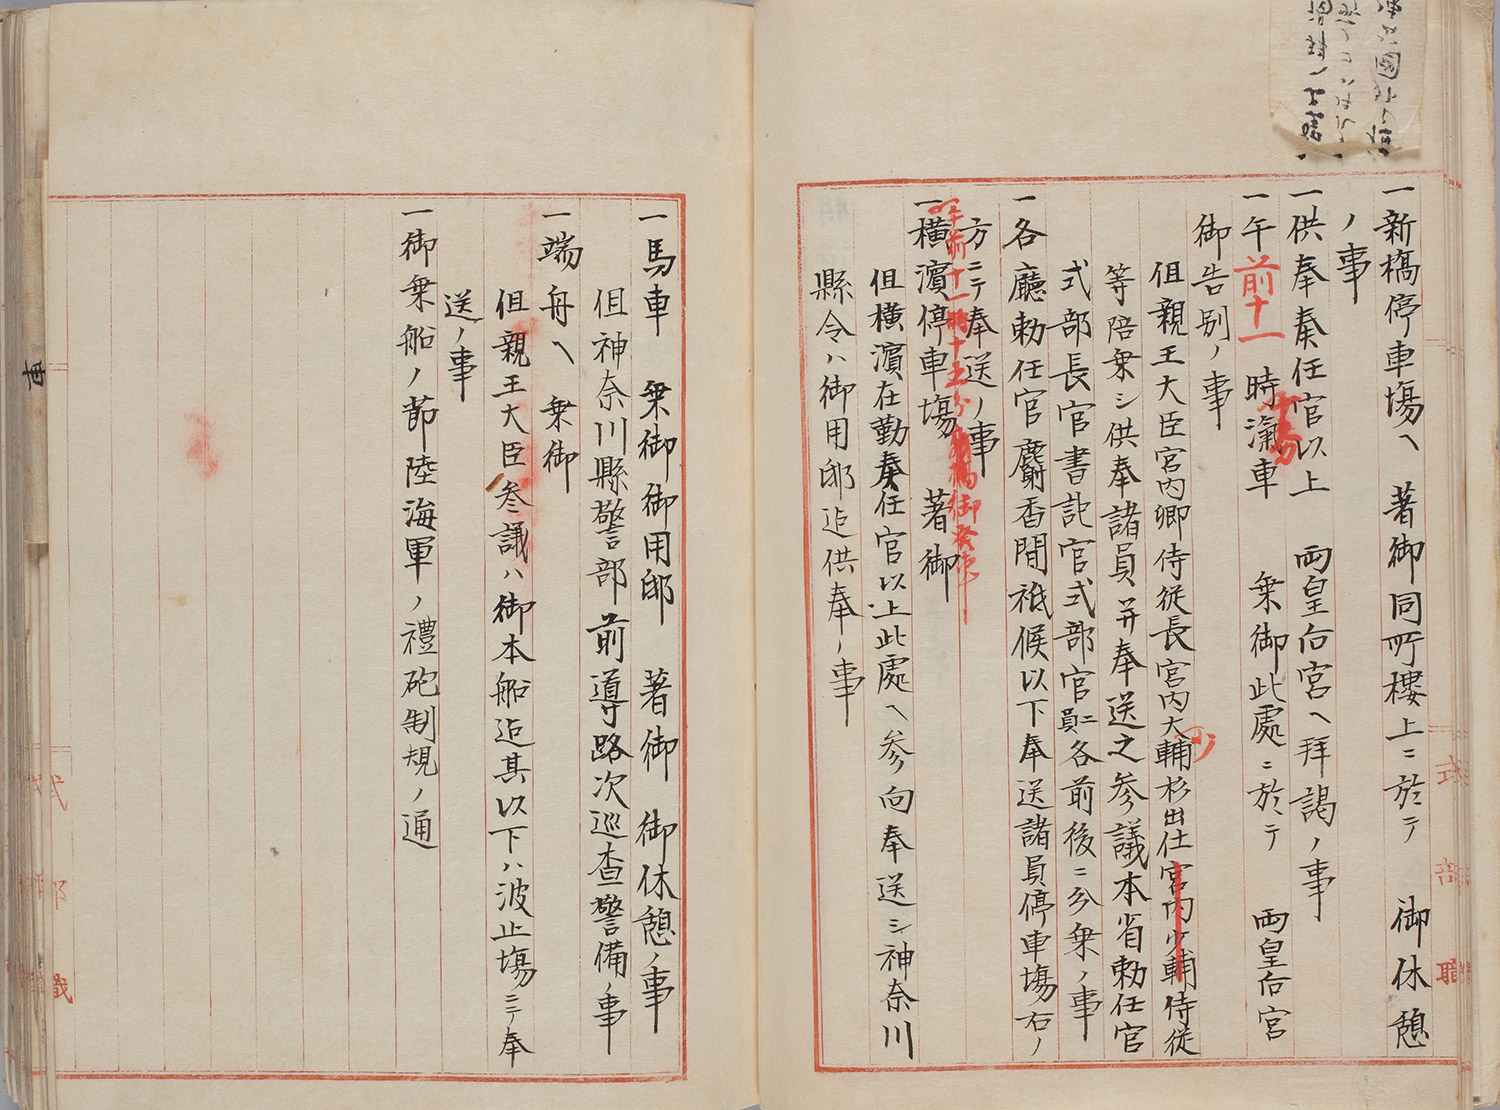 一新橋停車塲ヘ　著御同所樓上ニ於テ　御休憩
ノ事
一供奉奏任官以上　両皇后宮ヘ拜謁ノ事
一午前十一時滊車　乗御此處ニ於テ　両皇后宮
御告別ノ事
但親王大臣宮内卿侍従長宮内大輔杉出仕宮内少輔侍従
等陪乗シ供奉諸員并奉送之参議本省勅任官
式部長官書記官式部官員ニ各前後ニ分乗ノ事
一各廳勅任官麝香間祗候以下奉送諸員停車塲右ノ
方ニテ奉送ノ事
午前十一時十五分新橋御発車
一横濵停車塲　著御
但横濵在勤奏任官以上此處ヘ参向奉送シ神奈川
縣令ハ御用邸迠供奉ノ事
一馬車　乗御御用邸　著御　御休憩ノ事
但神奈川縣警部前導路次巡査警備ノ事
一端舟ヘ　乗御
但親王大臣参議ハ御本船迠其以下ハ波止塲ニテ奉
送ノ事
一御乗船ノ節陸海軍ノ禮砲制規ノ通
式部職